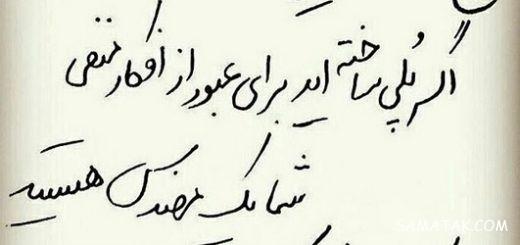 اگر پُلی ساخته اید برای عبور از افکار منفی
شما یک مهندس هستید
SAMATAK.COM